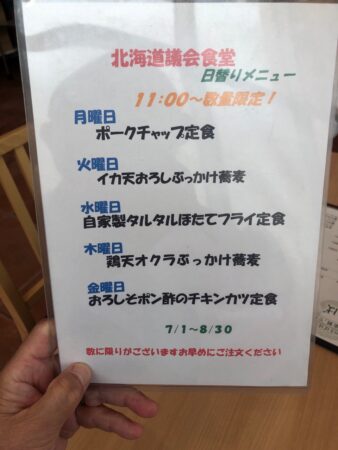 北海道議会食堂
日替りメニュー
11:00～数量限定！
月曜日
ポークチャップ定食
火曜日
イカ天おろしぶっかけ蕎麦
水曜日
自家製タルタルほたてフライ定食
木曜日
鶏天オクラぶっかけ蕎麦
金曜日
おろしそポン酢のチキンカツ定食
7/1～8/30
数に限りがございますお早めにご注文ください